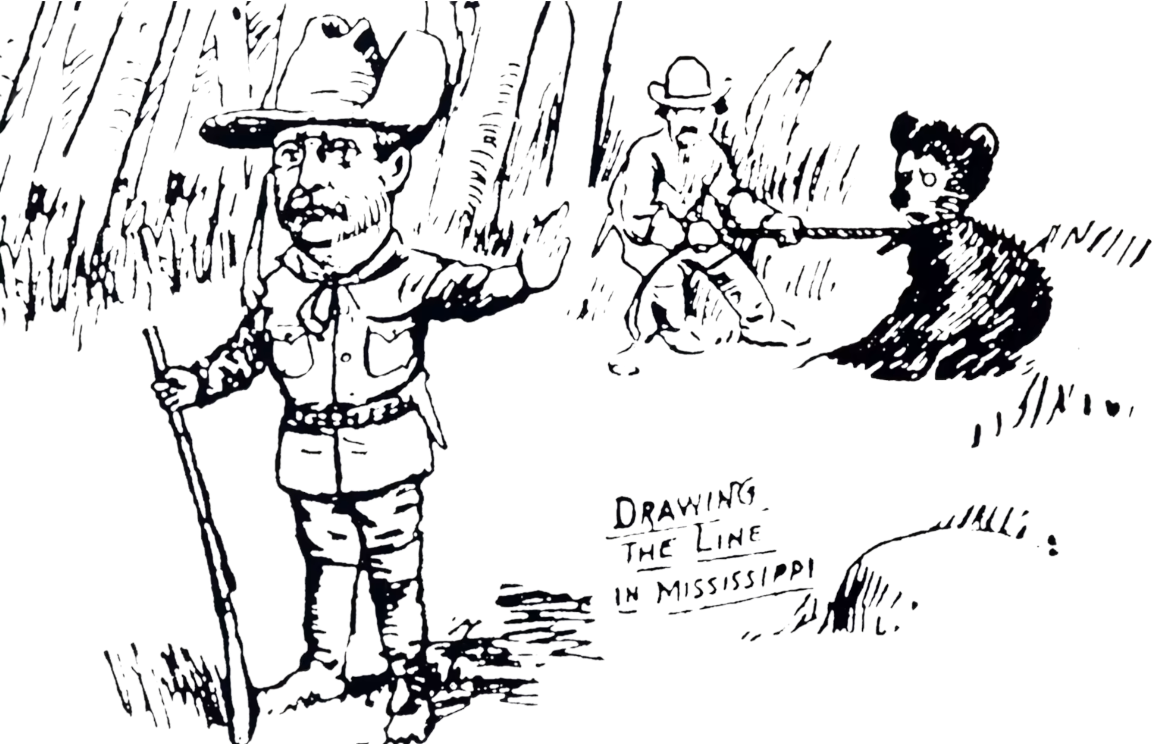 DRAWING
THE LINE
IN MISSISSIPPI